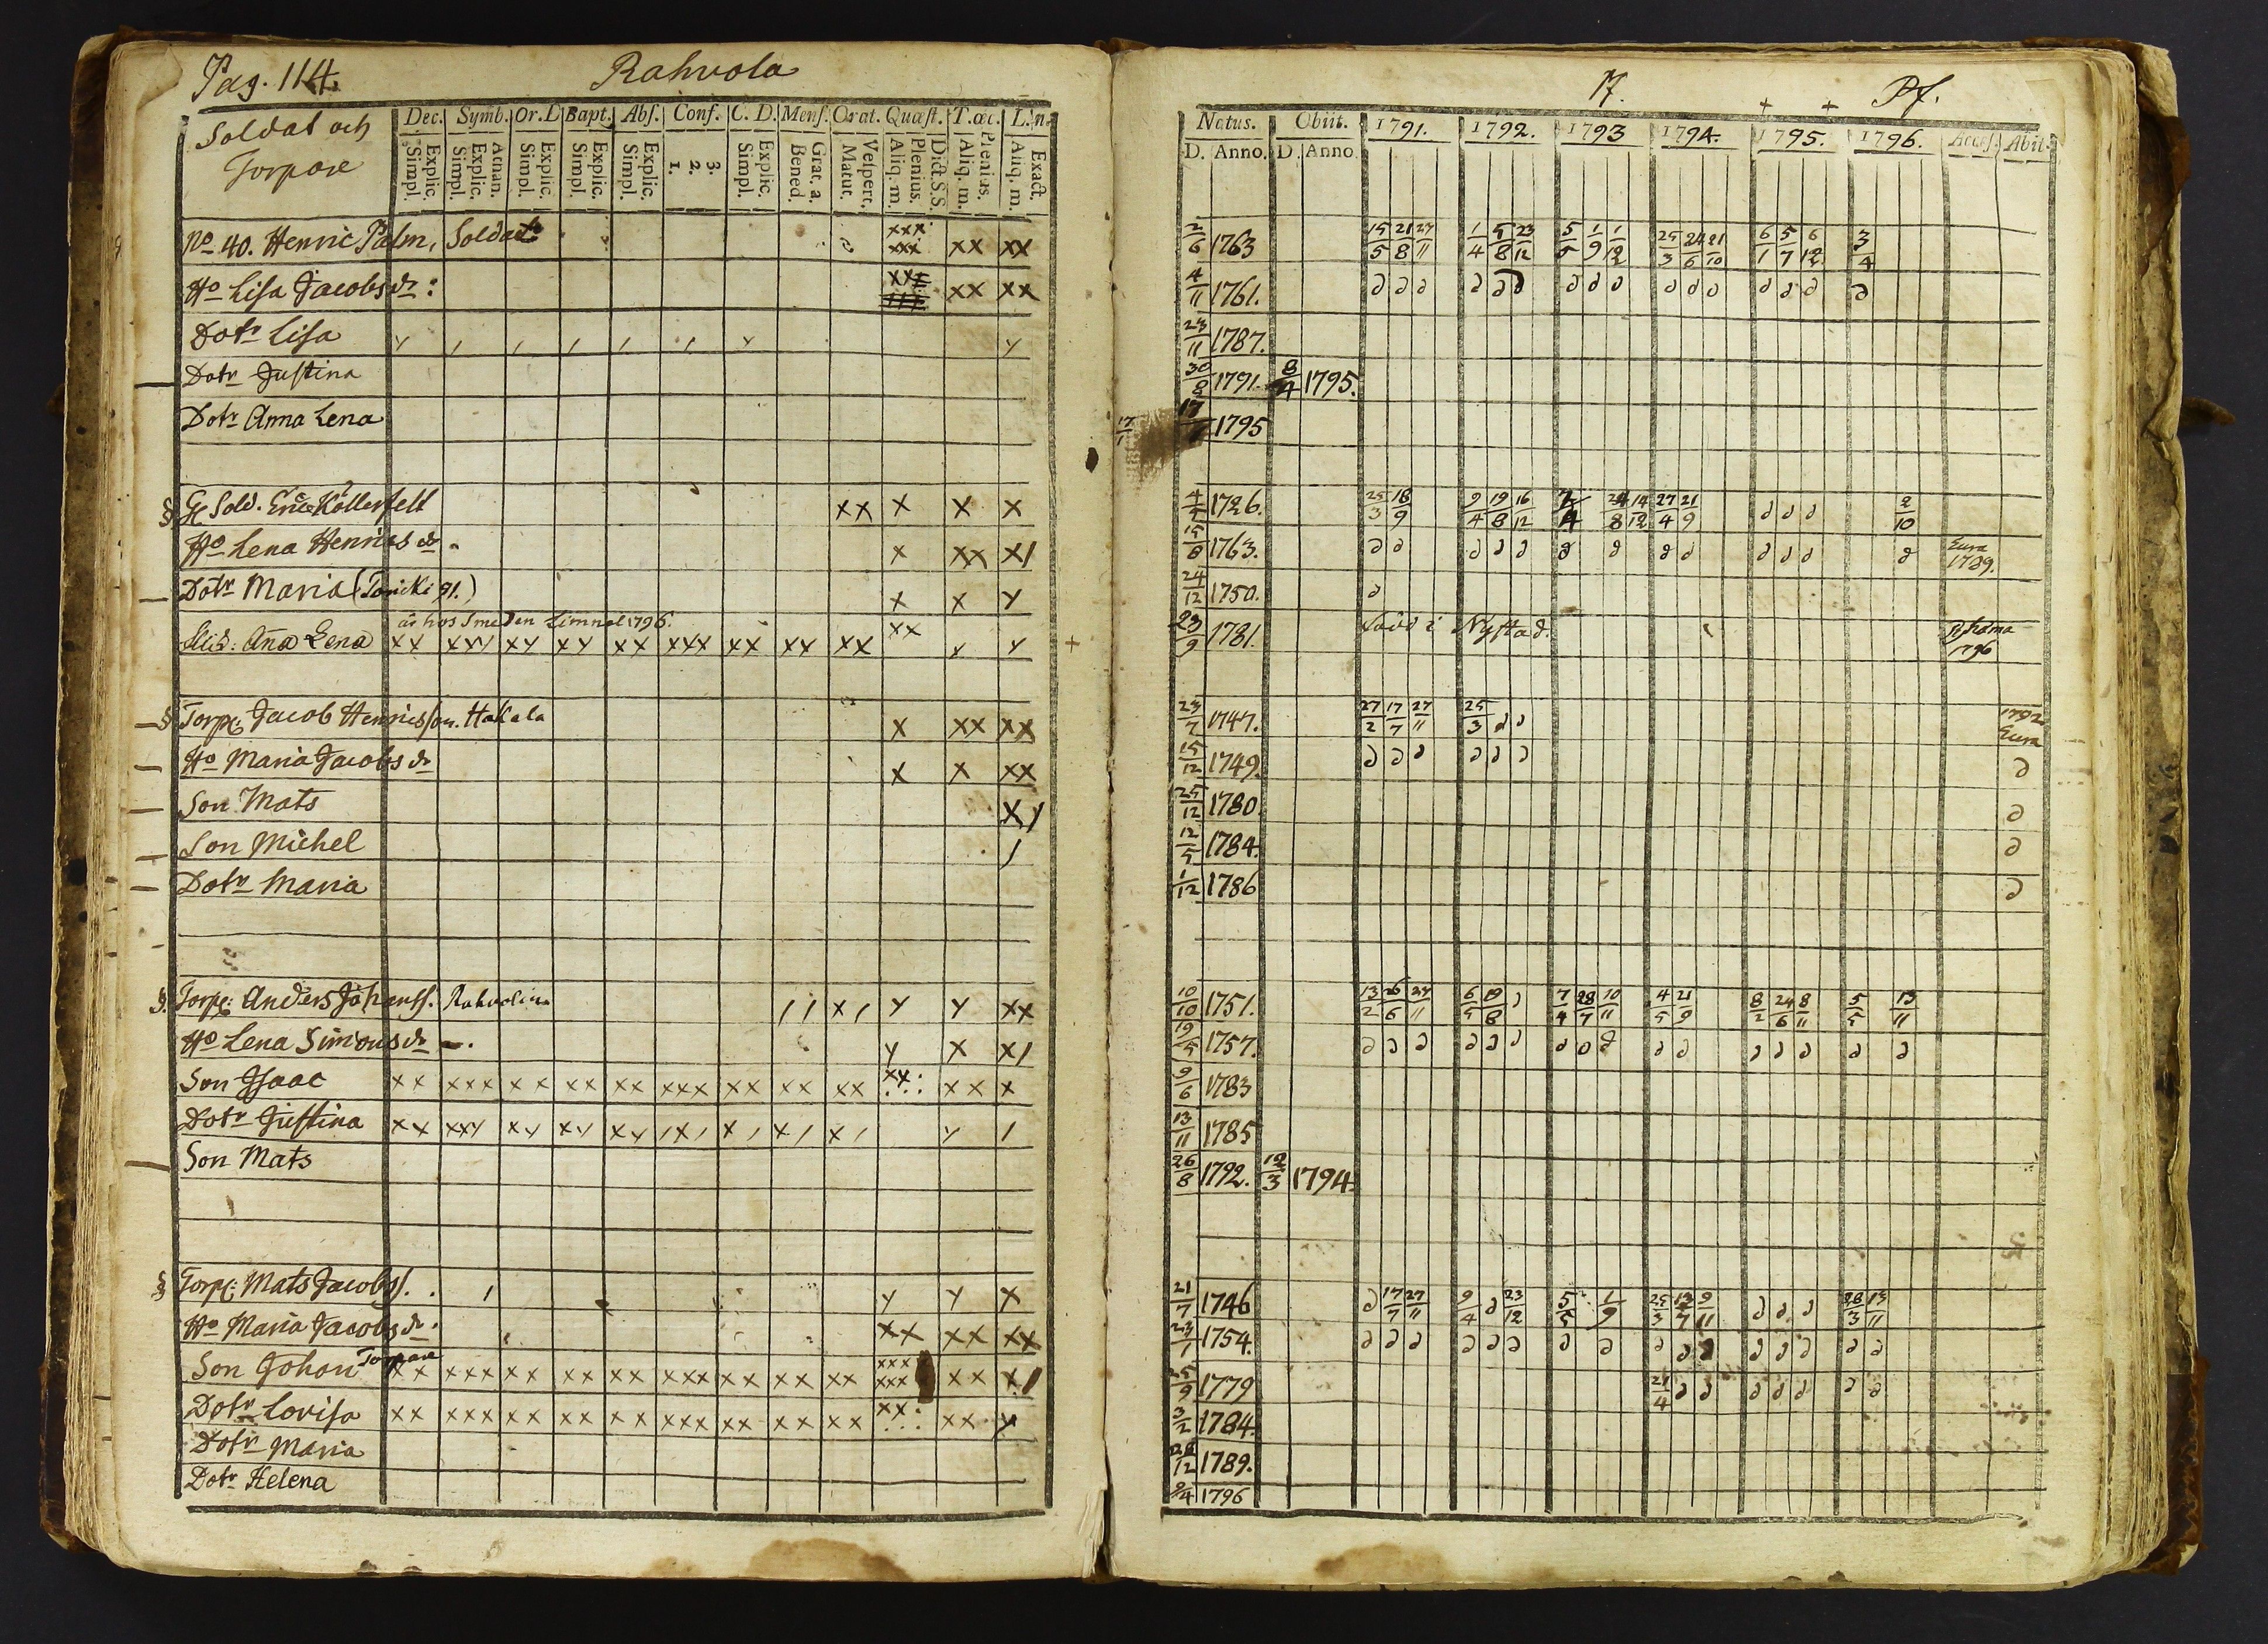 Pag. 114.
Rahvola
Soldat och
Torpare
Dec. Symb. Or. D Bapt. Abs. Conf. C. D. Mens. Orat. Quæst. T. œc. L. n.
Explic. Simpl.
Athan. Explic. Simpl.
Explic. Simpl.
Explic. Simpl.
Explic. Simpl.
3. 2. 1.
Explic. Simpl.
Grat. a. Bened.
Vespert. Matut.
Dict S.S. Plenius. Aliq. m.
Plenius. Aliq. m.
Exact. Aliq. m.
No 40. Henric Palm, Soldat xxx xxx xx xx
Ho Lisa Jacobsdr: xxx xx xx
Dotr Lisa
Dotr Justina
Dotr Anna Lena
§ Sold. Eric Kollerfelt xx x x x
Ho Lena Henricsdr. x xx x/
Dotr Maria (Toricki 91.) x x y
är hos Smeden Limnel 1796.
Anna Lena xx xxy xy xy xx xxx xx xx xx xx y y
§ Torp: Jacob Henricsson. Hakala x xx xx
Ho Maria Jacobsdr x x xx
Son Mats x/
Son Michel /
Dotr Maria
§. Torp: Anders Johanss. Rahvolin // x/ y y xx
Ho Lena Simonsdr y x x/
Son Isaac xx xxx xx xx xx xxx xx xx xx xx xx x
Dotr Justina xx xxy xy xy xy /x/ x/ x/ x/ y /
Son Mats
§ Torp: Mats Jacobs. / y y x
Ho Maria Jacobsdr. xx xx xx
Son Johan Torpare xx xxx xx xx xx xxx xx xx xx xxx xxx xx x/
Dotr Lovisa xx xxx xx xx xx xxx xx xx xx xx xx y
Dotr Maria
Dotr Helena
17. Pf.
Natus. Obiit. 1791. 1792. 1793 1794. 1795. 1796. Access. Abit.
D. Anno. D. Anno
2/6 1763 15/5 21/8 27/11 1/4 5/8 23/12 5/5 1/9 1/12 25/3 24/6 21/10 6/1 5/7 6/12 3/4
4/11 1761. d d d d d d d d d d d d d d d d
23/11 1787.
30/8 1791. 8/4 1795.
17/1 17/1 1795
4/4 1726. 25/3 18/9 9/4 19/8 16/12 7/4 24/8 14/12 27/4 21/9 d d d 2/10
15/8 1763. d d d d d d d d d d d d d Eura 1789.
24/12 1750. d
23/9 1781. Nystad. 1796
23/7 1747. 27/2 17/7 27/11 25/3 d d 1792 Eura
15/12 1749. d d d d d d d
25/12 1780. d
12/5 1784. d
1/12 1786 d
10/10 1751. 13/2 26/6 27/11 6/5 19/8 d 7/4 28/7 10/11 4/5 21/9 8/2 24/6 8/11 5/5 13/11
19/5 1757. d d d d d d d d d d d d d d d d
9/6 1783
13/11 1785
26/8 1792. 12/3 1794.
21/7 1746 d 17/7 27/11 9/4 d 23/12 5/5 1/9 25/3 13/7 9/11 d d d 28/3 13/11
23/1 1754. d d d d d d d d d d d d d d d d
25/9 1779 21/4 d d d d d d d
3/2 1784.
12 1789.
9/4 1796